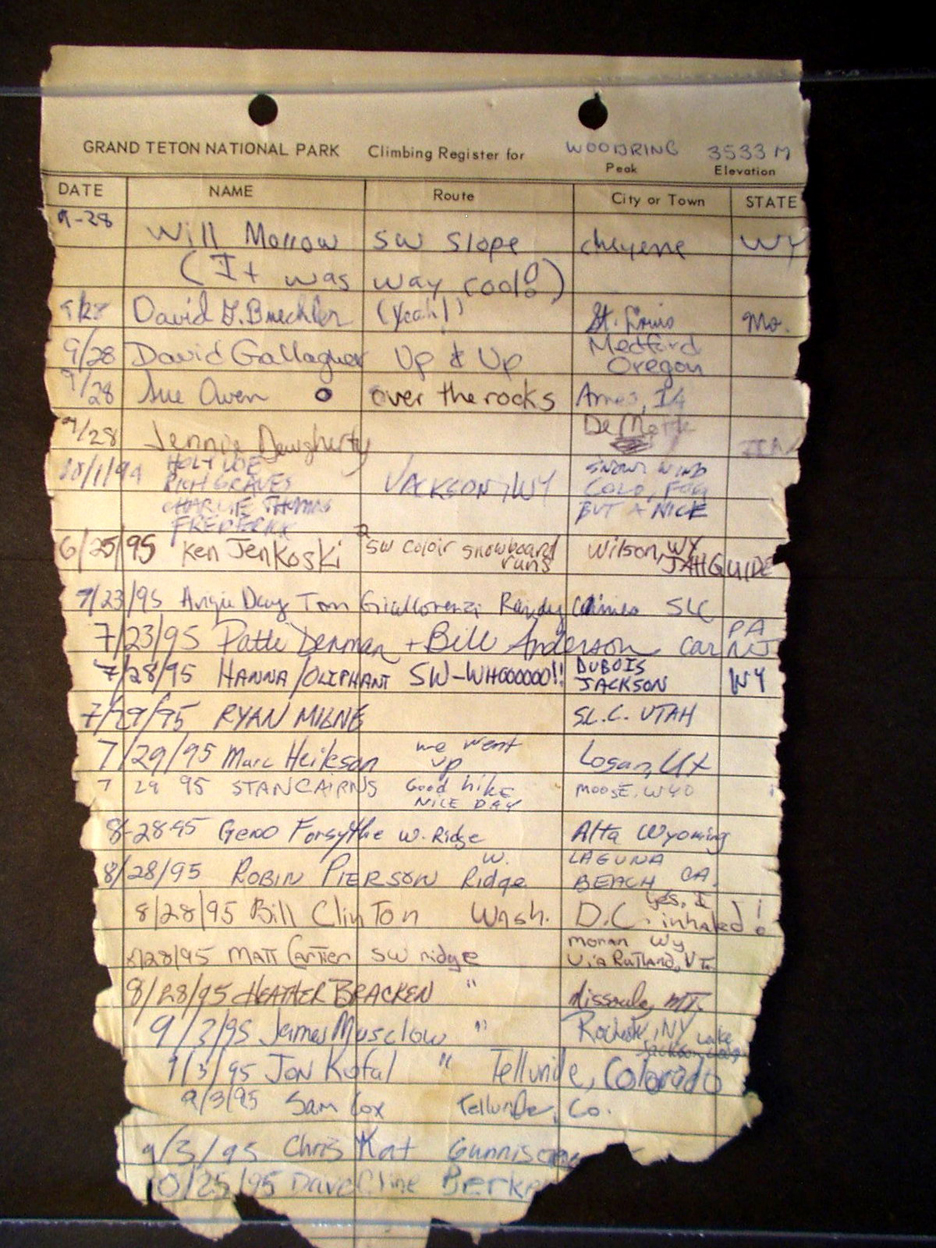 GRAND TETON NATIONAL PARK Climbing Register for WOODRING 3533 M
Peak Elevation
DATE NAME Route City or Town STATE
9-28 Will Morrow SW Slope cheyenne WY
(It was way cool!)
9/28 David G. Buechler (Yeah!) St. Louis Mo.
9/28 David Gallagher Up & Up Medford Oregon
9/28 Sue Owen over the rocks Ames, IA
9/28 Jennie Daugherty De Motte
10/1/94 HOLY JOE
RICH GRAVES JACKSON, WY SNOW WIND
CHARLIE THOMAS COLD, FOG
FREDERICK BUT A NICE
6/25/95 Ken Jenkoski SW coloir snowboard runs Wilson, WY JAH GUIDE
7/23/95 Angie Day Tom Giallorenzi Randy SLC
7/23/95 Patti Denman + Bill Anderson PA NJ
7/28/95 HANNA/OLIPHANT SW-WHOOOOOO!! DUBOIS JACKSON WY
7/29/95 RYAN MILNE SL.C. UTAH
7/29/95 Marc Heileson we went up Logan, UT
7 29 95 STAN CAIRNS Good hike NICE DAY MOOSE, WYO
8-28 95 Geno Forsythe W. Ridge Alta Wyoming
8/28/95 ROBIN PIERSON W. Ridge LAGUNA BEACH CA.
8/28/95 Bill Clinton Wash. D.C. yes, I inhaled!!
8/28/95 MATT Cartier SW ridge moran Wy
Via Rutland, VT.
8/28/95 HEATHER BRACKEN " MT.
9/3/95 James Musclow " Rochester, NY
9/3/95 JON Kofal " Telluride, Colorado
9/3/95 Sam Cox Telluride, Co.
9/3/95 Chris Kat
10/25/95 Dave Cline